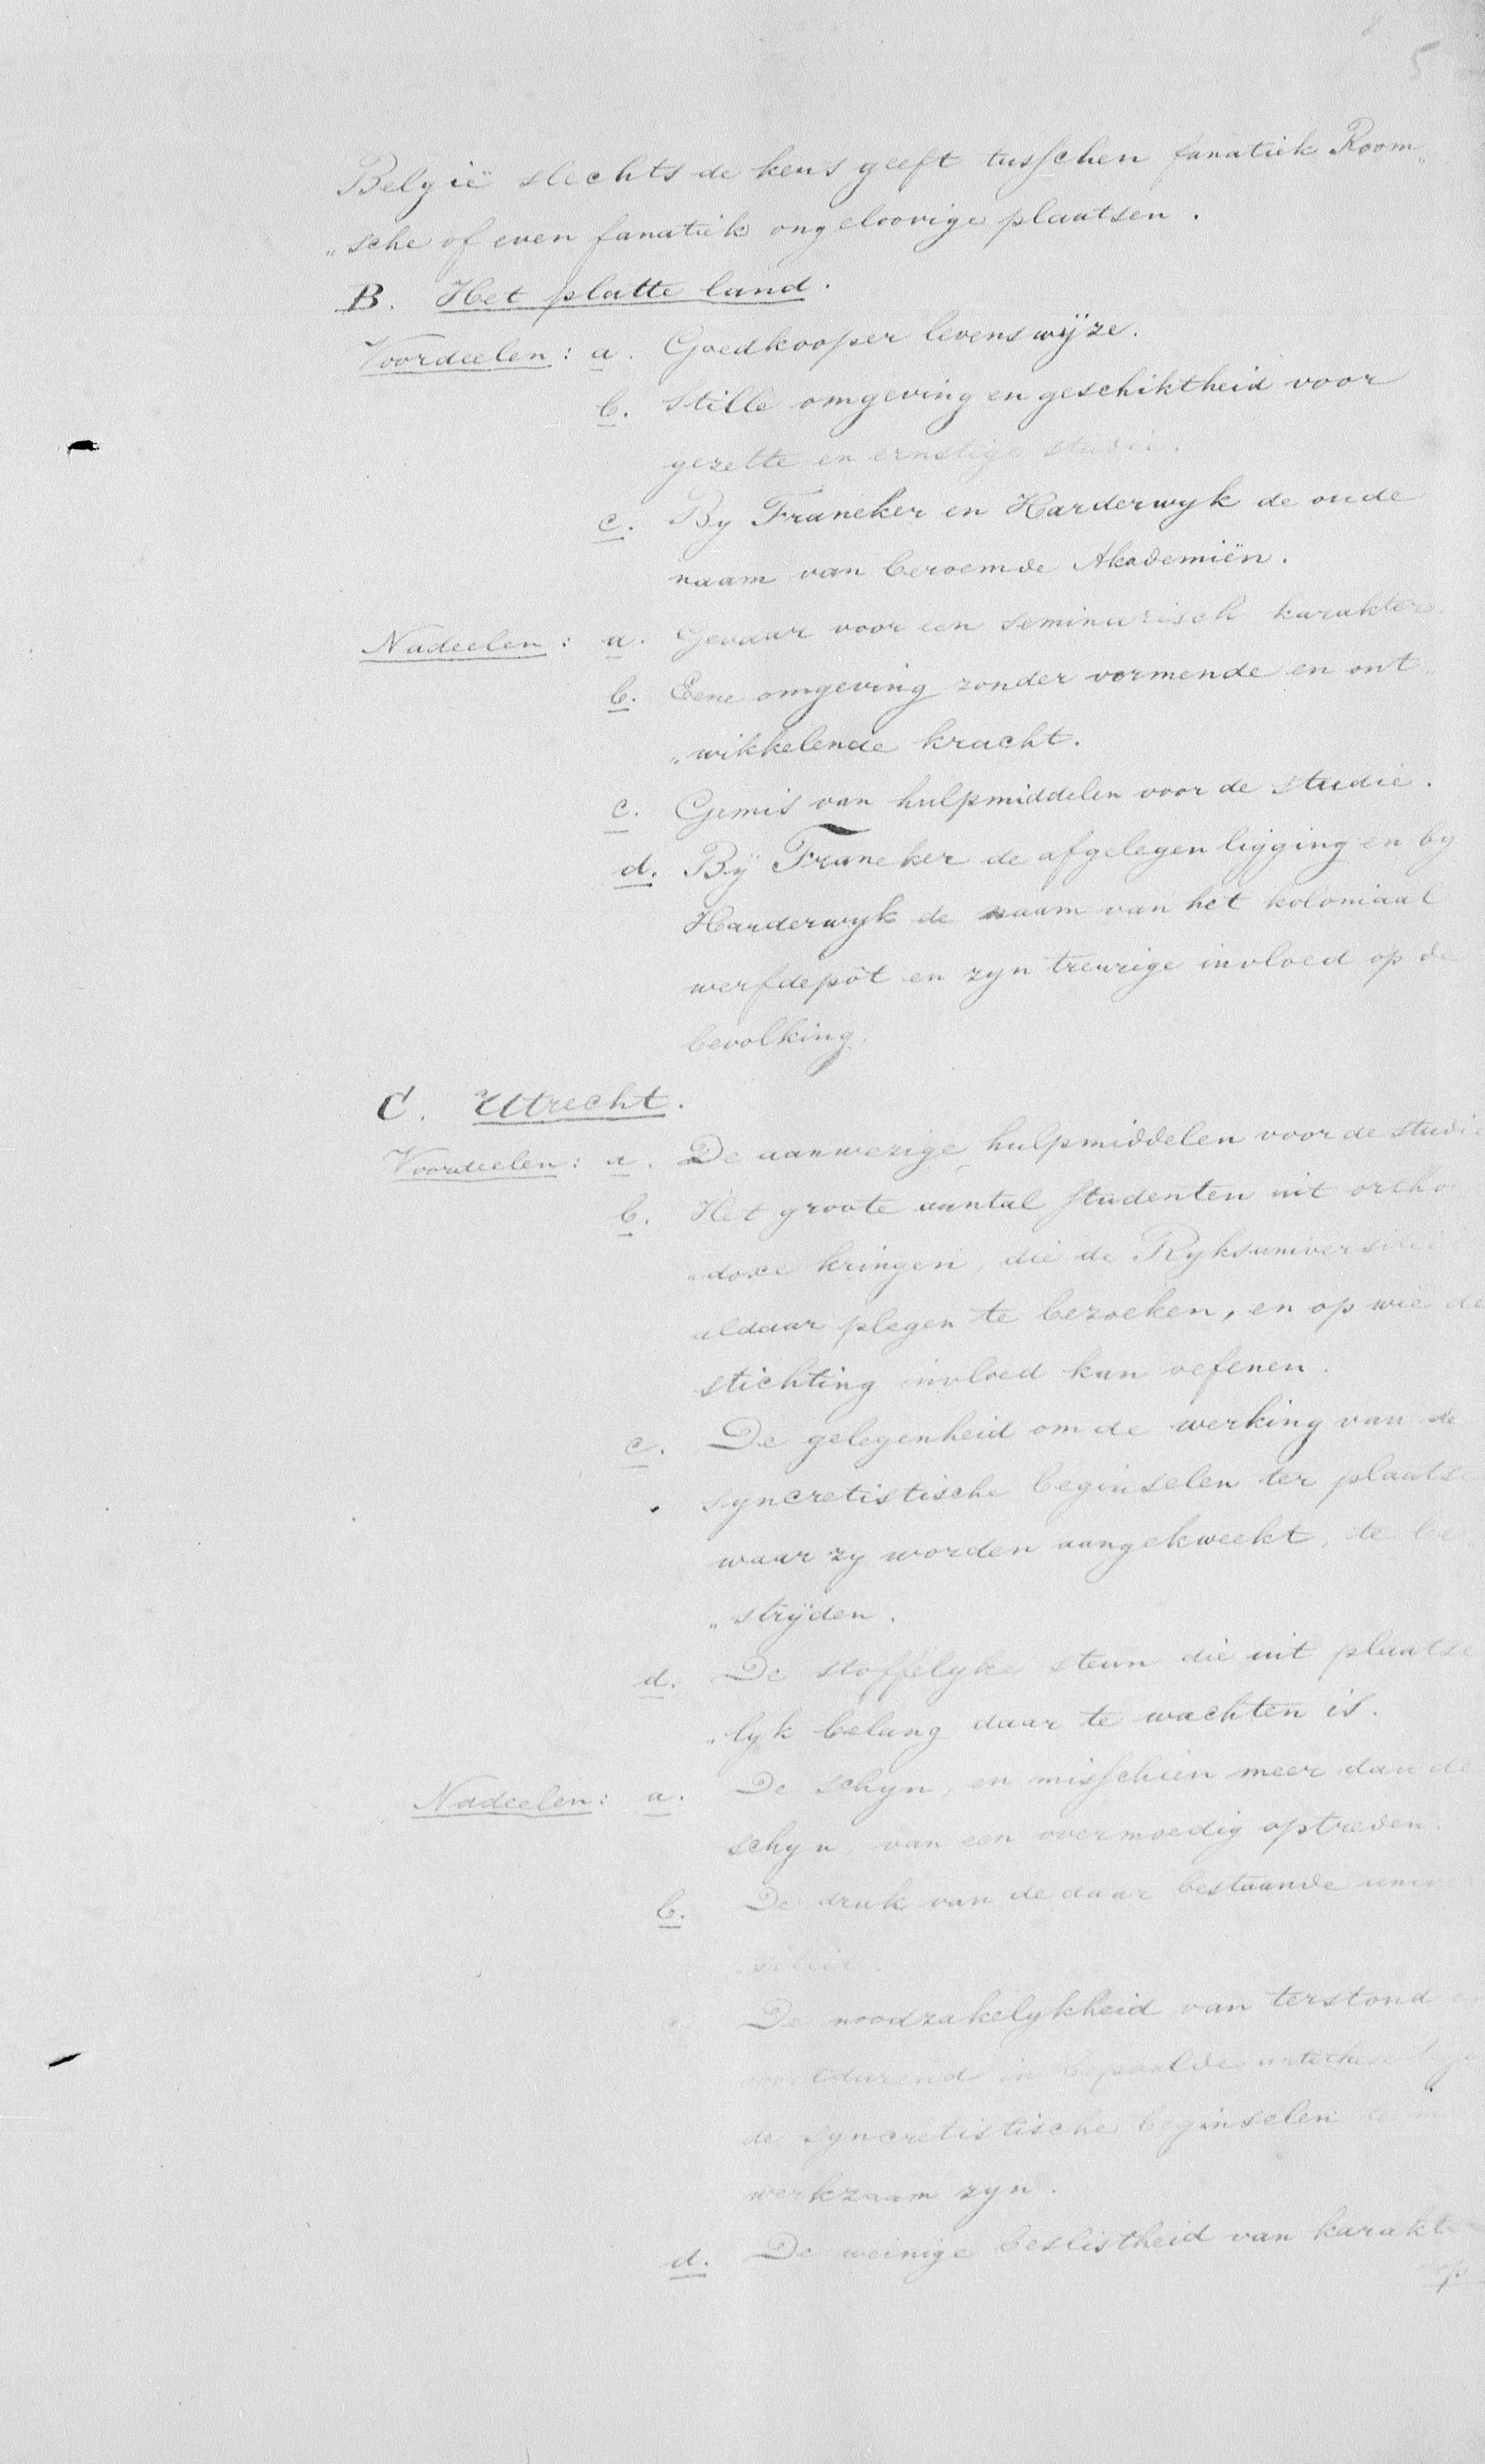 8
5
België slechts de keus geeft tusschen fanatiek Room„
„sche of even fanatiek ongeloovige plaatsen.
B. Het platte land.
Voordeelen: a. Goedkooper levenswijze.
b. Stille omgeving en geschiktheid voor
gezette en ernstige studie.
c. By Franeker en Harderwyk de oude
naam van beroemde Akademiën.
Nadeelen: a. Gevaar voor een seminarisch karakter.
b. Eene omgeving zonder vormende en ont„
„wikkelende kracht.
c. Gemis van hulpmiddelen voor de studie.
d. Bÿ Franeker de afgelegen ligging en by
Harderwyk de naam van het koloniaal
werfdepôt en zyn treurige invloed op de
bevolking.
C. Utrecht.
Voordeelen: a. De aanwezige hulpmiddelen voor de studie
b. Het groote aantal studenten uit ortho
„doxe kringen, die de Ryksuniversitei
aldaar plegen te bezoeken, en op wie de
stichting invloed kan oefenen.
c. De gelegenheid om de werking van de
syncretistische beginselen ter plaatse
waar zy worden aangekweekt, te be„
„strÿden.
d. De stoffelyke steun die uit plaatse
„lyk belang daar te wachten is.
Nadeelen: a. De schyn, en misschien meer dan de
schyn, van een overmoedig optreden.
b. De druk van de daar bestaande univer
siteit.
c. De noodzakelykheid van terstond en
voortdurend in bepaalde antithese tege
de syncretistische beginselen te
werkzaam zyn.
d. De weinige beslistheid van karakte
op